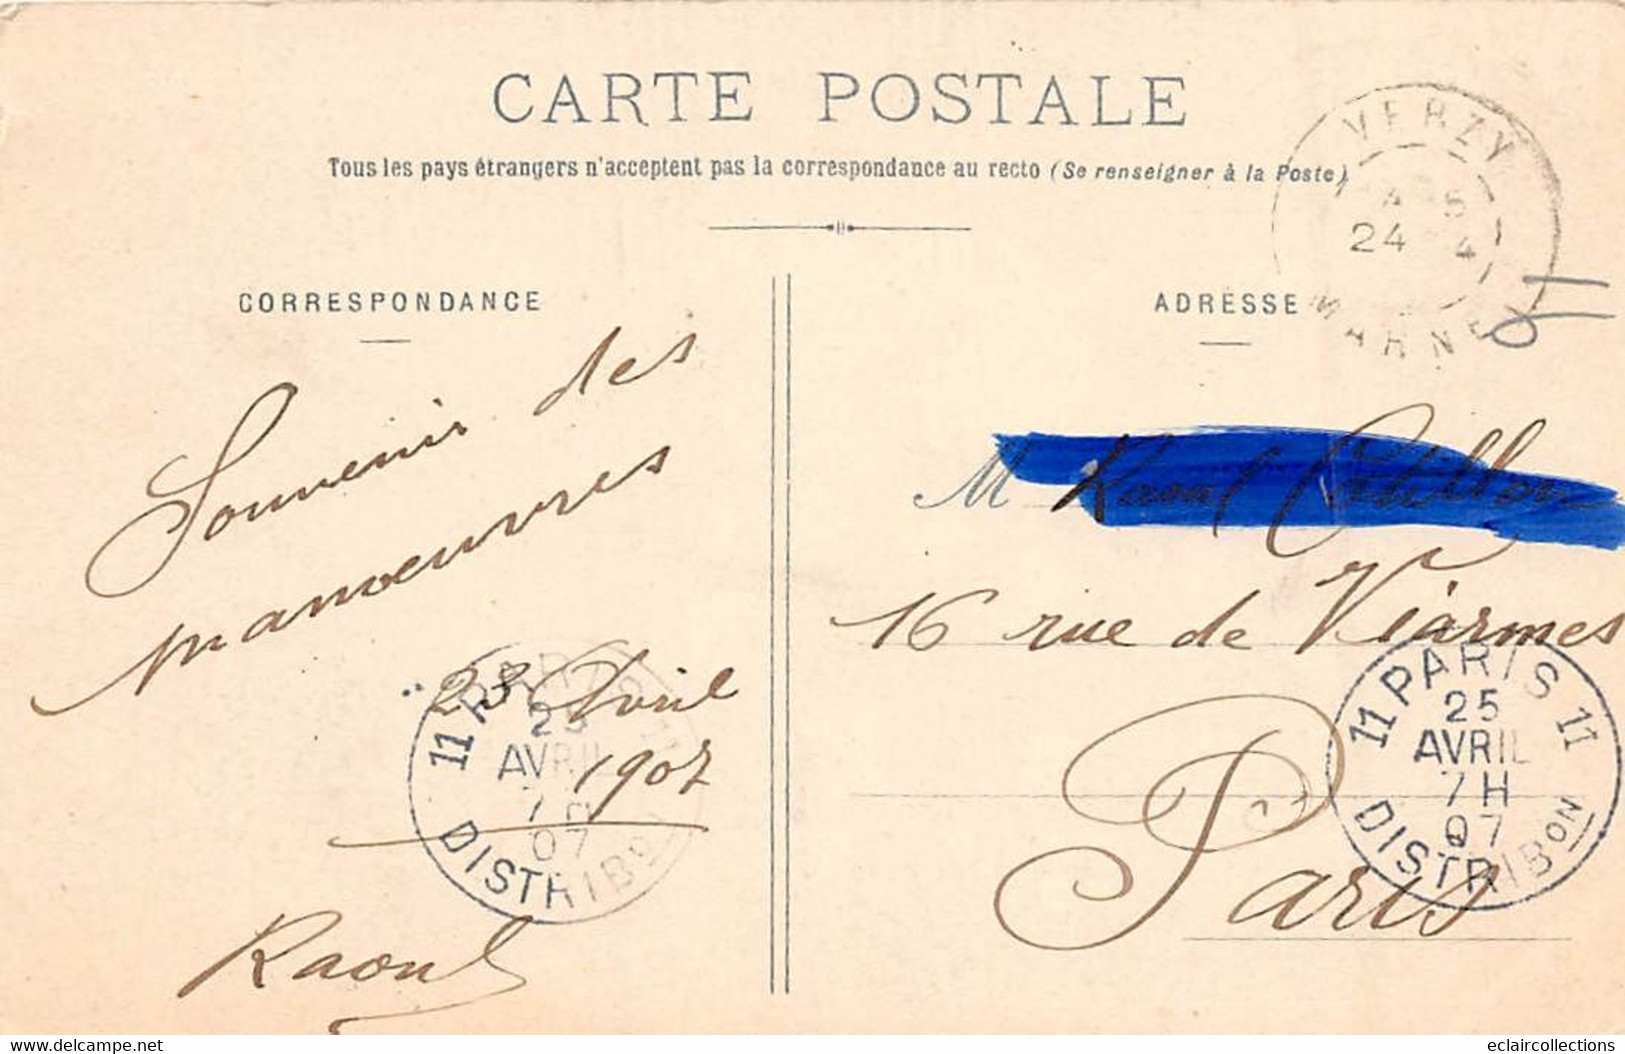 CARTE POSTALE
Tous les pays étrangers n'acceptent pas la correspondance au recto (Se renseigner à la Poste)
VERZY
24 4
MARNE
CORRESPONDANCE
Souvenir des
manoeuvres
23 Avril
1907
Raoul
11 PARIS 11
25
AVRIL
7 H
07
DISTRIBON
ADRESSE
M Raoul
16 rue de Viarmes
Paris
11 PARIS 11
25
AVRIL
7H
07
DISTRIBON
delcampe.net
eclaircollections